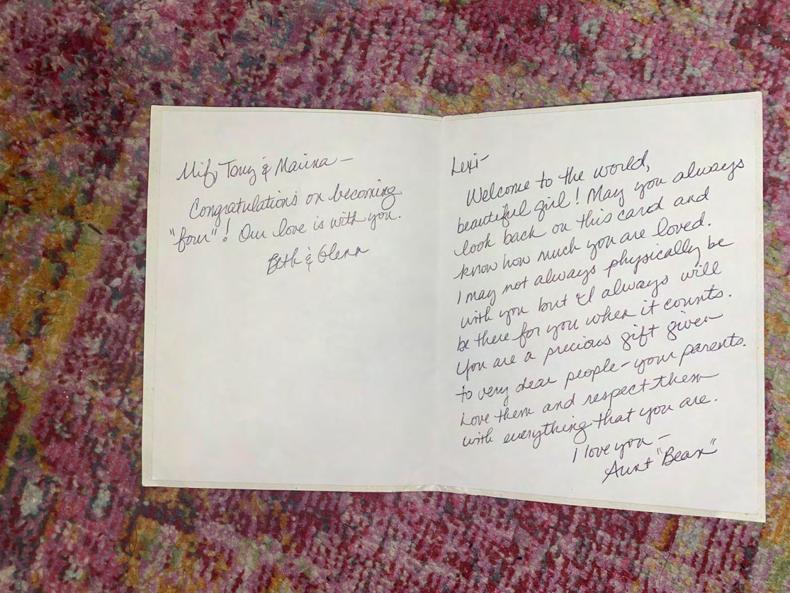 Mif, Tony & Marina –
Congratulations on becoming
"four"! Our love is with you.
Beth & Glenn
Lexi–
Welcome to the world,
beautiful girl! May you always
look back on this card and
know how much you are loved.
I may not always physically be
with you but I always will
be there for you when it counts.
You are a precious gift given
to very dear people – your parents.
Love them and respect them
with everything that you are.
I love you –
Aunt "Bean"